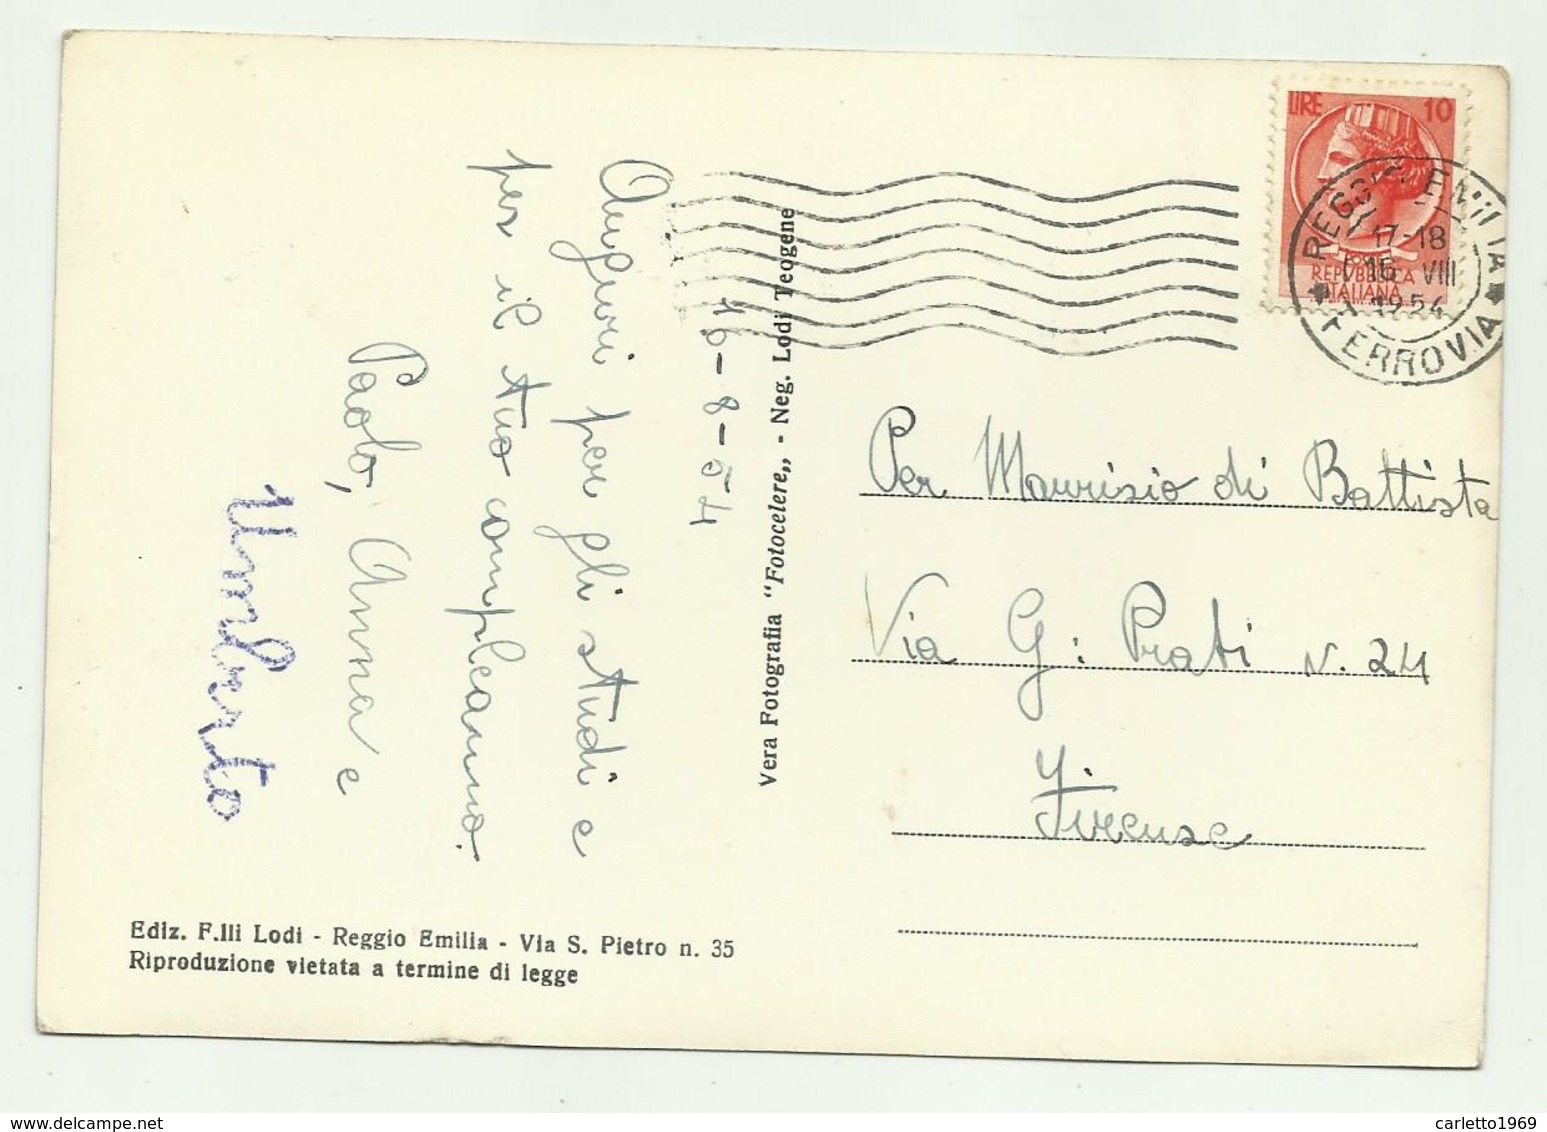 16-8-54
Auguri per gli studi e
per il tuo compleanno.
Paolo, Anna e
Umberto
Vera Fotografia "Fotocelere„ - Neg. Lodi Teogene
LIRE 10
POSTE
REPVBBLICA
ITALIANA
REGGIO EMILIA
17-18
16 VIII
1954
FERROVIA
Per Maurizio di Battista
Via G. Prati N. 24
Firenze
Ediz. F.lli Lodi - Reggio Emilia - Via S. Pietro n. 35
Riproduzione vietata a termine di legge
carletto1969